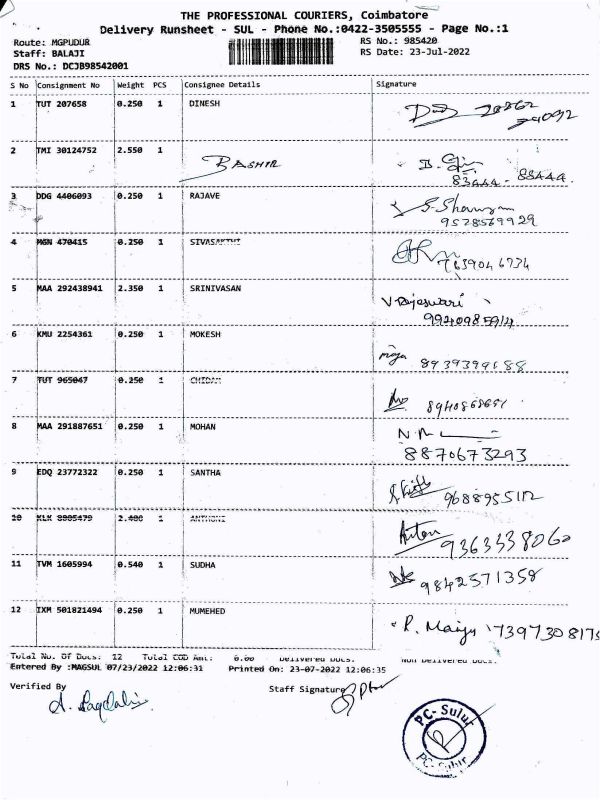 THE PROFESSIONAL COURIERS, Coimbatore
Delivery Runsheet - SUL - Phone No.:0422-3505555 - Page No.:1
Route: MGPUDUR RS No.: 985420
Staff: BALAJI RS Date: 23-Jul-2022
DRS No.: DCJB98542001
S No Consignment No Weight PCS Consignee Details Signature
1 TUT 207658 0.250 1 DINESH
2 TMI 30124752 2.550 1 BASHIR
83444 - 88444
3 DDG 4406093 0.250 1 RAJAVE
9578569929
4 MGN 470415 0.250 1 SIVASAKTHI
7639046734
5 MAA 292438941 2.350 1 SRINIVASAN V Rajeswari
6 KMU 2254361 0.250 1 MOKESH
8939399188
7 TUT 965047 0.250 1
8 MAA 291887651 0.250 1 MOHAN
8870673293
9 EDQ 23772322 0.250 1 SANTHA
10 KLK 1 ANTHONI
9363338060
11 TVM 1605994 0.540 1 SUDHA
9842571358
12 IXM 501821494 0.250 1 MUMEHED
Total No. Of Docs: 12 Total COD Amt: 0.00 Delivered Docs: Non Delivered Docs:
Entered By :MAGSUL 07/23/2022 12:06:31 Printed On: 23-07-2022 12:06:35
Verified By Staff Signature
PC- Sulur
PC-Sulur